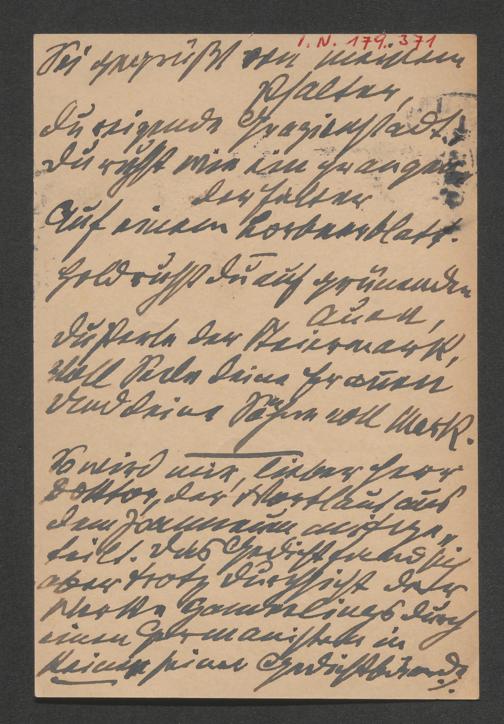 I. N. 179.371
Sei gegrüßt von meinem
Psalter,
Du reizende Grazienstadt.
Du ruhst wie ein prangen-
der Falter
Auf einem Lorbeerblatt.
Hold ruhst du auf grünenden
Auen,
Du Perle der Steiermark,
Voll Seele deine Frauen
Und deine Söhne voll Mark.
So wird mir, lieber Herr
Doktor, der Wortlaut aus
dem Joanneum mitge-
teilt. Das Gedicht fand sich
aber trotz Durchsicht der
Werke Hamerlings durch
einen Germanisten in
keinem seiner Gedichtbände